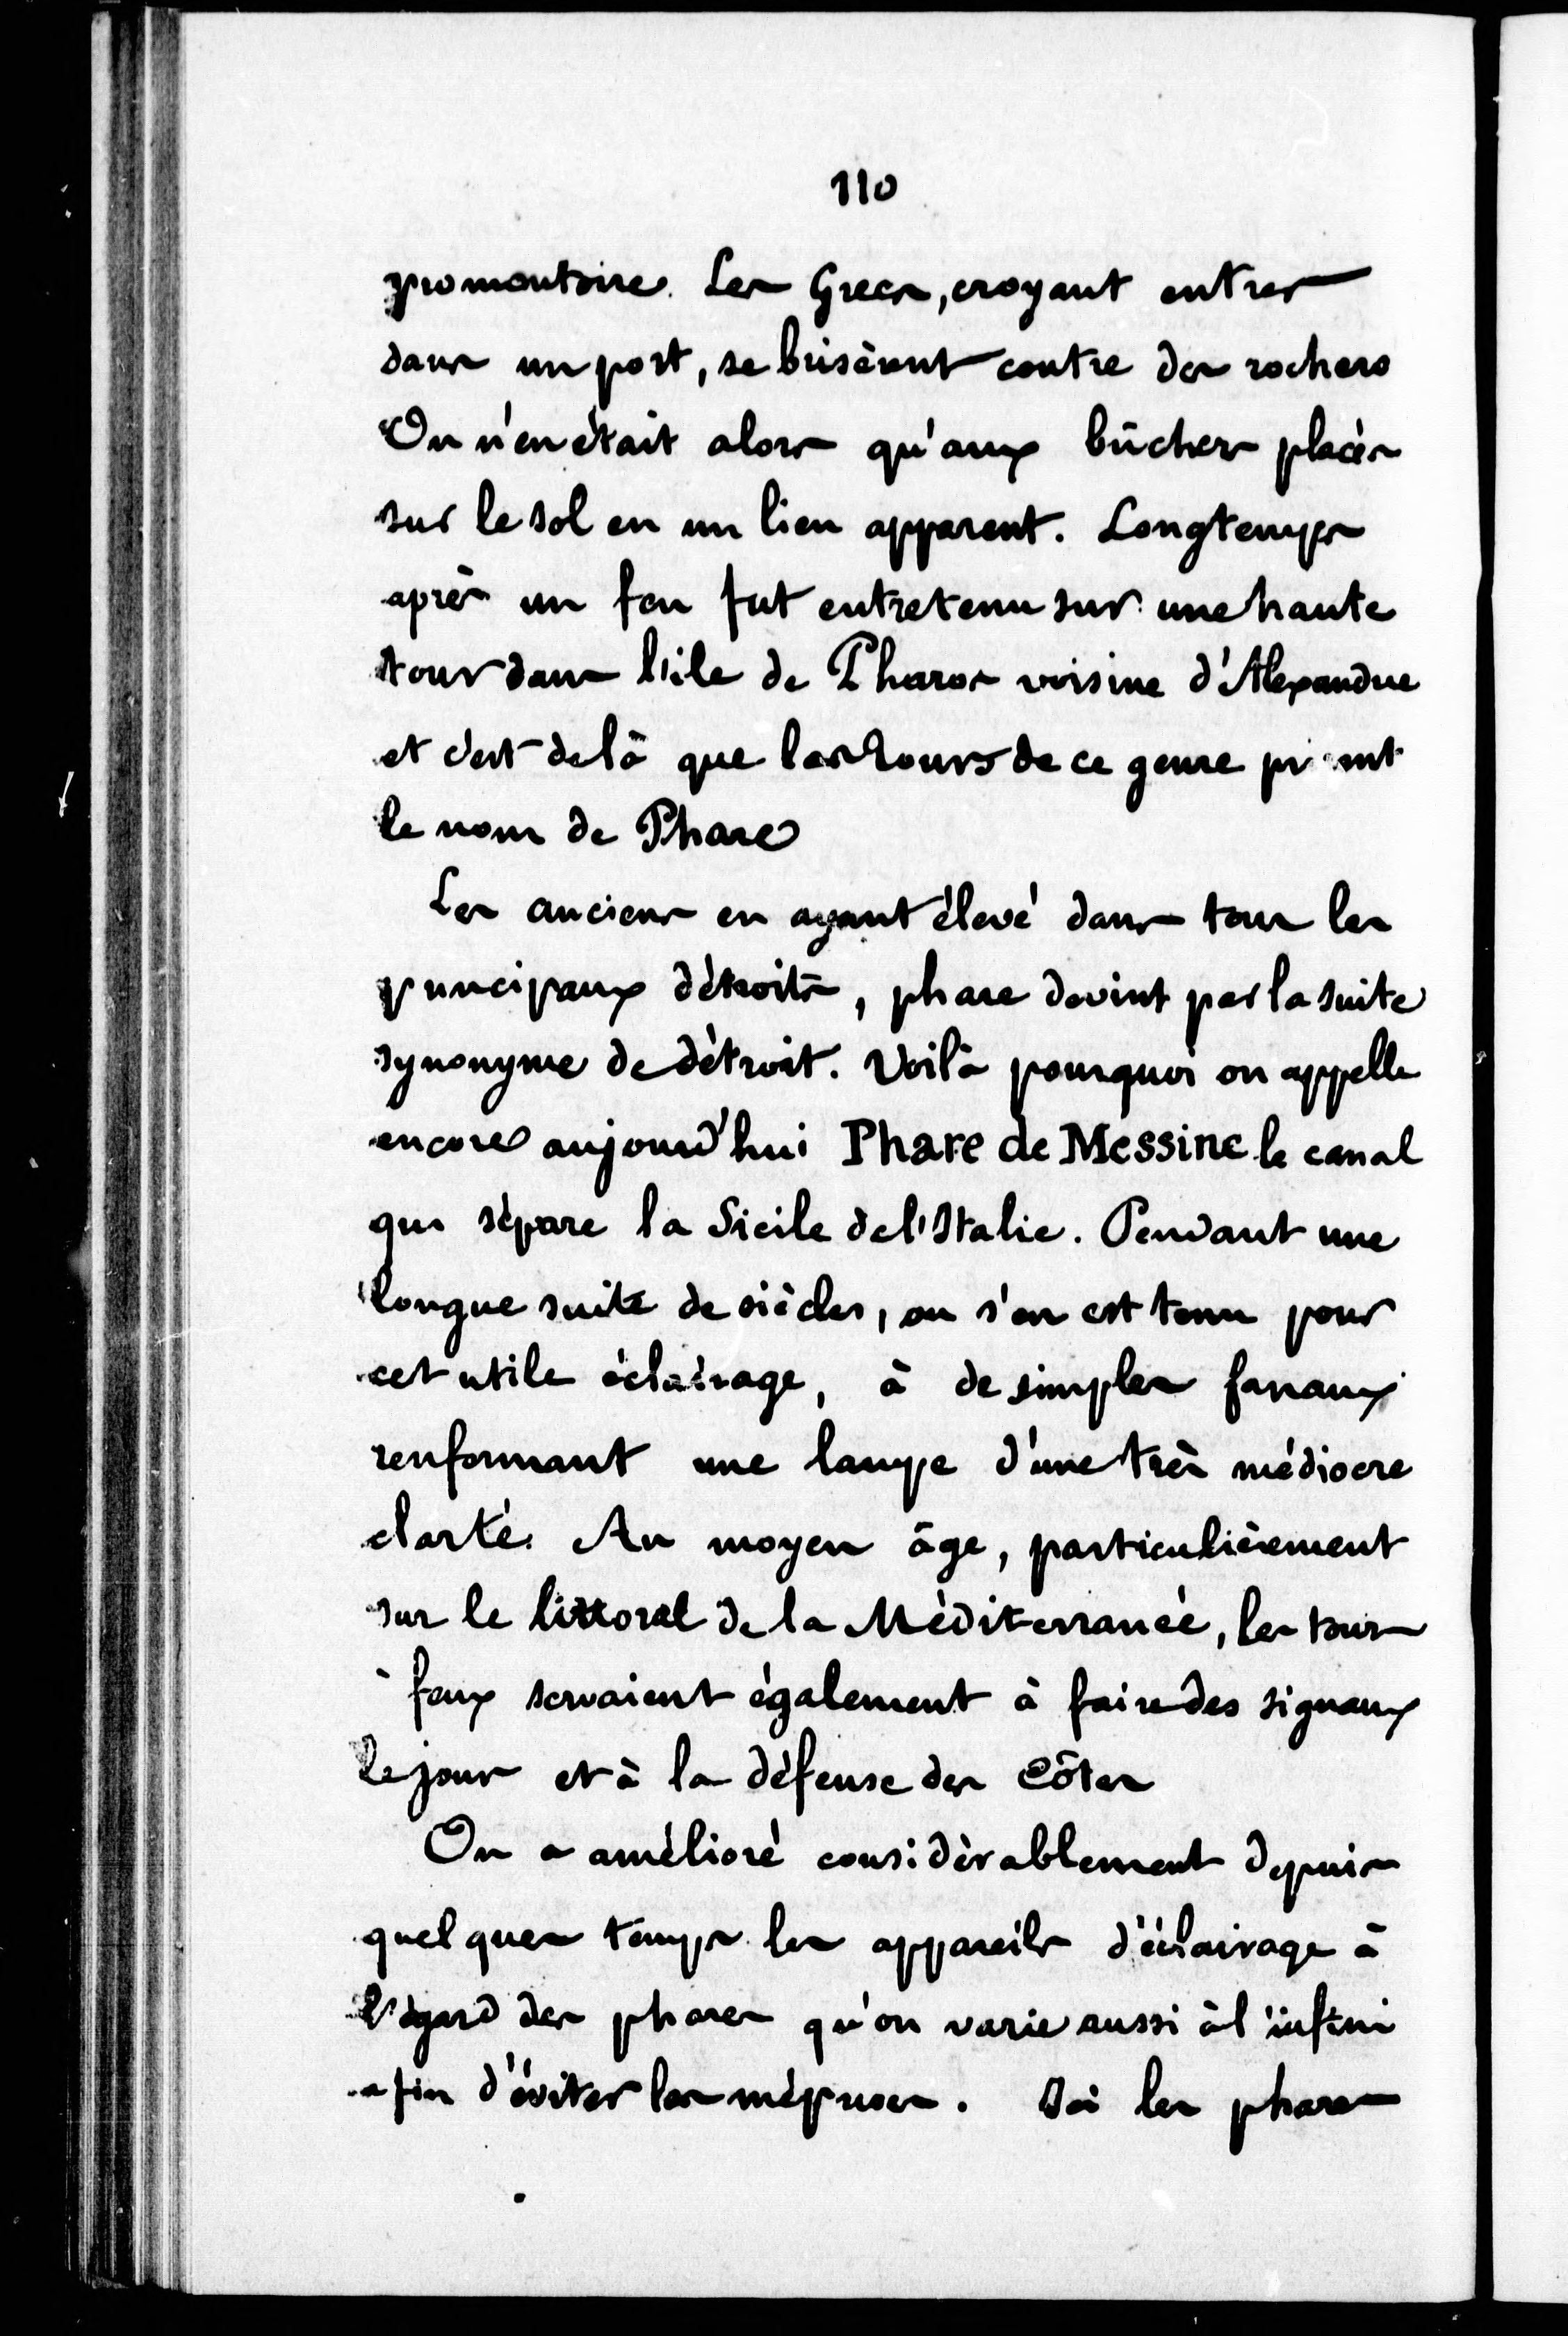 110
promontoire. Les Grecs, croyant entrer
dans un port, se brisèrent contre des rochers
On n'en était alors qu'aux bûchers placés
sur le sol en un lieu apparent. Longtemps
après un feu fut entretenu sur une haute
tour dans l'île de Pharos voisine d'Alexandrie
et c'est delà que les tours de ce genre
le nom de Phare
Les anciens en ayant élevé dans tous les
principaux détroits, phare devint par la suite
synonyme de détroit. Voilà pourquoi on appelle
encore aujourd'hui Phare de Messine le canal
qui sépare la Sicile de l'Italie. Pendant une
longue suite de siècles, on s'en est tenu pour
cet utile éclairage, à de simples fanaux
renfermant une lampe d'une très médiocre
clarté. Au moyen âge, particulièrement
sur le littoral de la Méditerranée, les tours
à feux servaient également à faire des signaux
le jour et à la défense des Côtes
On a amélioré considérablement depuis
quelques temps les appareils d'éclairage à
l'égard des phares qu'on varie aussi à l'infini
afin d'éviter les méprises. Ici les phares